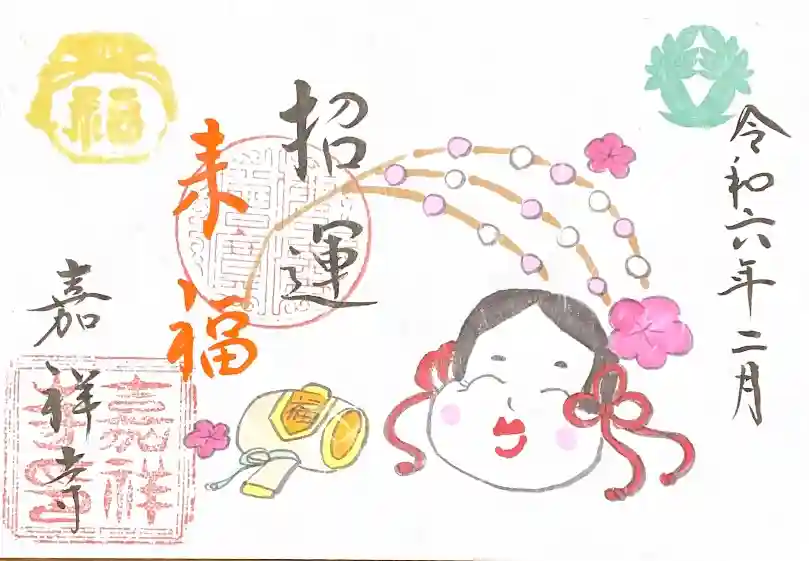 令和六年二月
招運
来福
福
嘉祥寺
嘉祥
寺印
福